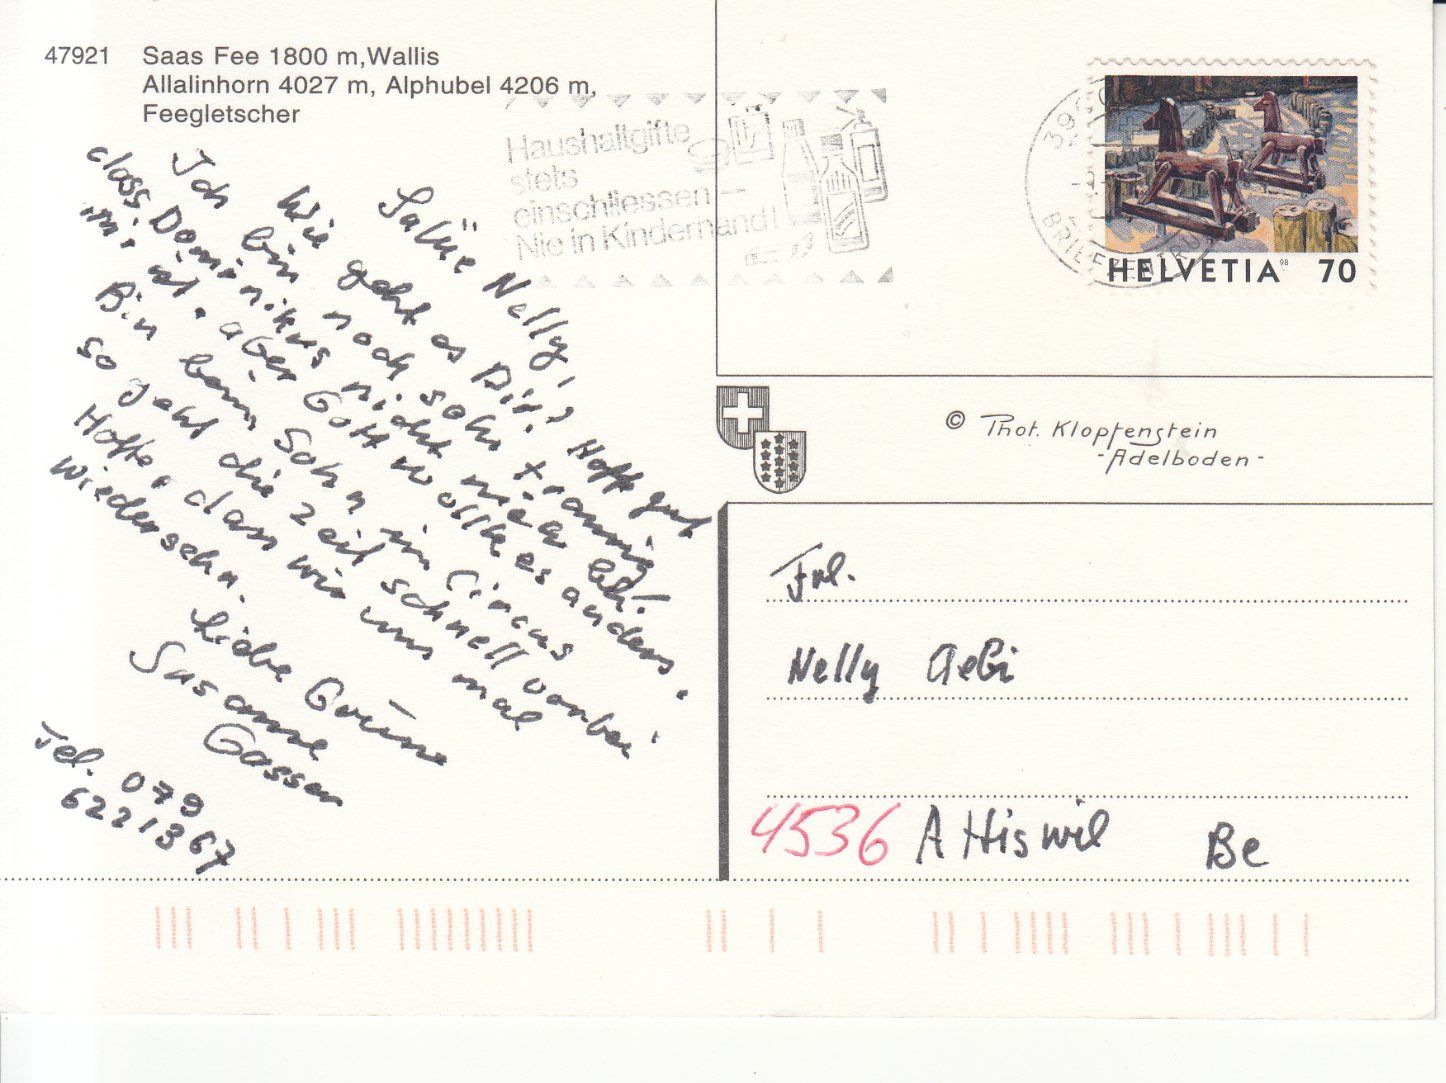 47921 Saas Fee 1800 m,Wallis
Allalinhorn 4027 m, Alphubel 4206 m,
Feegletscher
Haushaltgifte
stets
einschliessen –
Nie in Kinderhand!
BRIEFZENTRUM
HELVETIA 98 70
Salüe Nelly,
Wie geht es Dir? Hoffe gut
Ich bin noch sehr traurig
dass Dominikus nicht mehr bei
mir ist. aber Gott wollte es anders.
Bin beim Sohn im Circus
so geht die Zeit schnell vorbei.
Hoffe, dass wir uns mal
wiedersehn.
Liebe Grüsse
Susanne
Gasser
Tel. 079
6221367
© Phot. Klopfenstein
-Adelboden-
Frl.
Nelly Aebi
4536 Attiswil Be